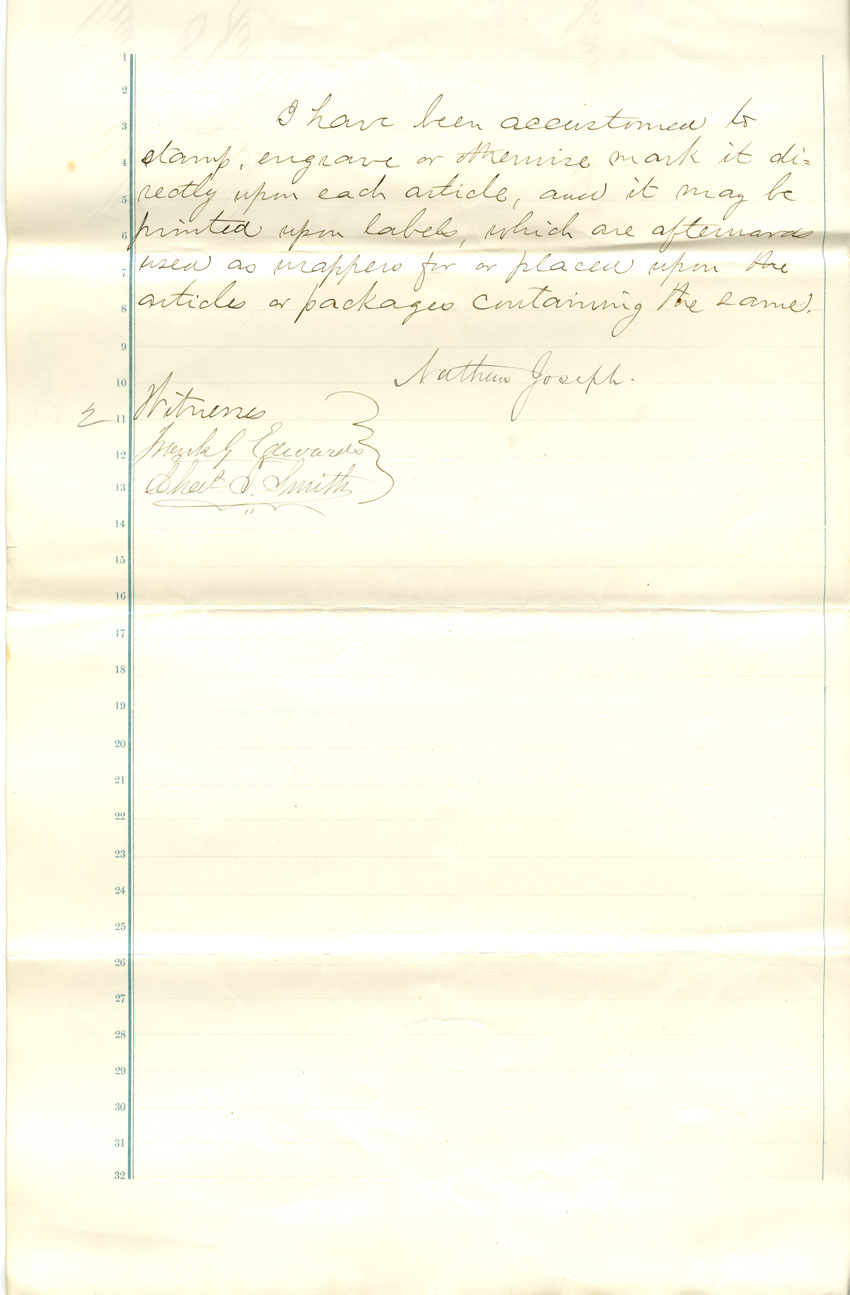 1
2
I have been accustomed to
3
stamp, engrave or otherwise mark it di=
4
rectly upon each article, and it may be
5
printed upon labels, which are afterwards
6
used as wrappers for or placed upon the
7
articles or packages containing the same.
8
9
Nathan Joseph.
10
Witnesses
2
11
Frank G Edwards
12
Chas. T. Smith
13
14
15
16
17
18
19
20
21
22
23
24
25
26
27
28
29
30
31
32